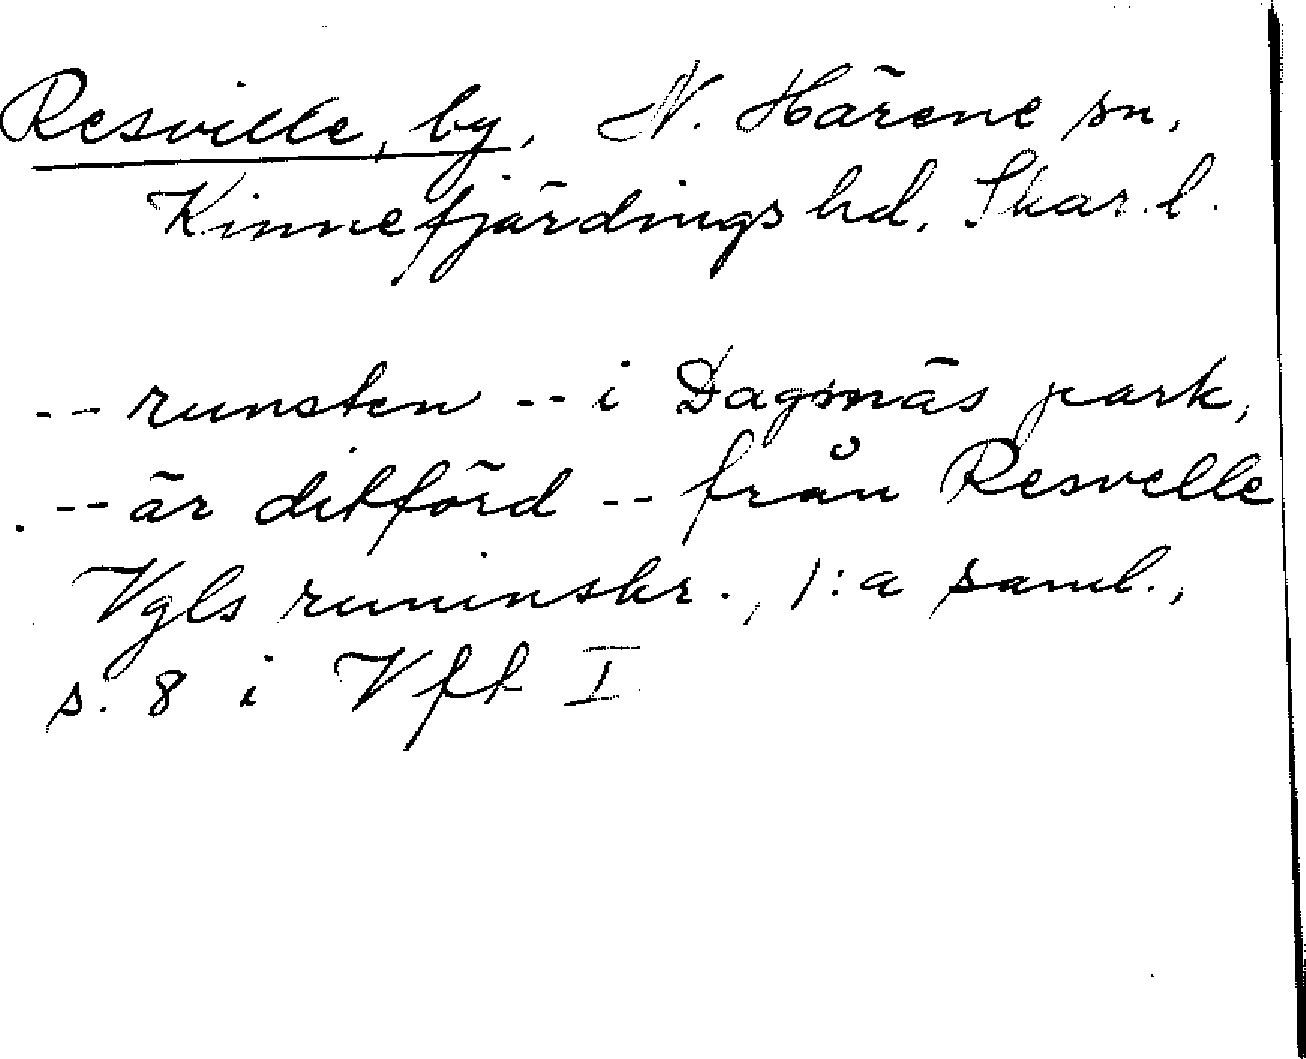 Resville, by, N. Härene sn,
Kinnefjärdings hd, Skar. l.
-- runsten -- i Dagsnäs park,
-- är ditförd -- från Resvelle
Vgls runinskr., 1:a saml.,
s. 8 i Vff I